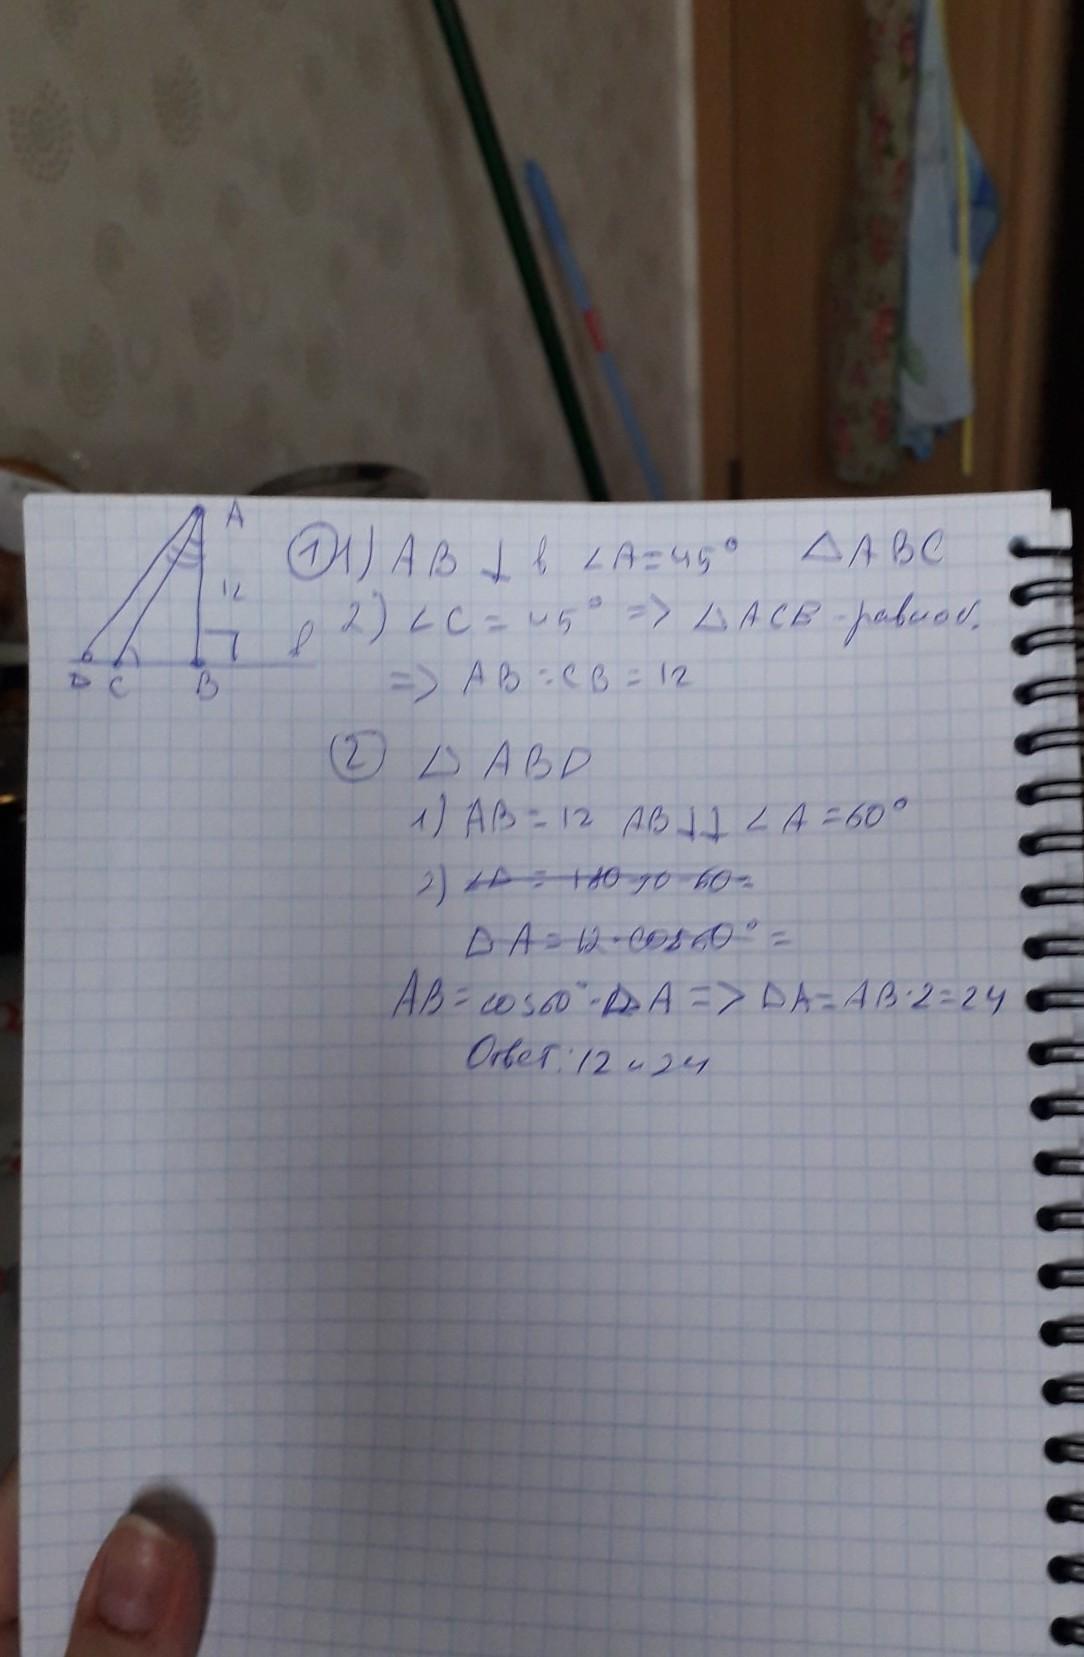 A
12
l
D C B
① 1) AB ⊥ l ∠A = 45° △ABC
2) ∠C = 45° => △ACB - равноб.
=> AB = CB = 12
② △ ABD
1) AB = 12 AB ⊥ l ∠A = 60°
2) ∠D = 180 - 90 - 60 =
DA = 12 · cos 60° =
AB = cos 60° · DA => DA = AB · 2 = 24
Ответ: 12 и 24